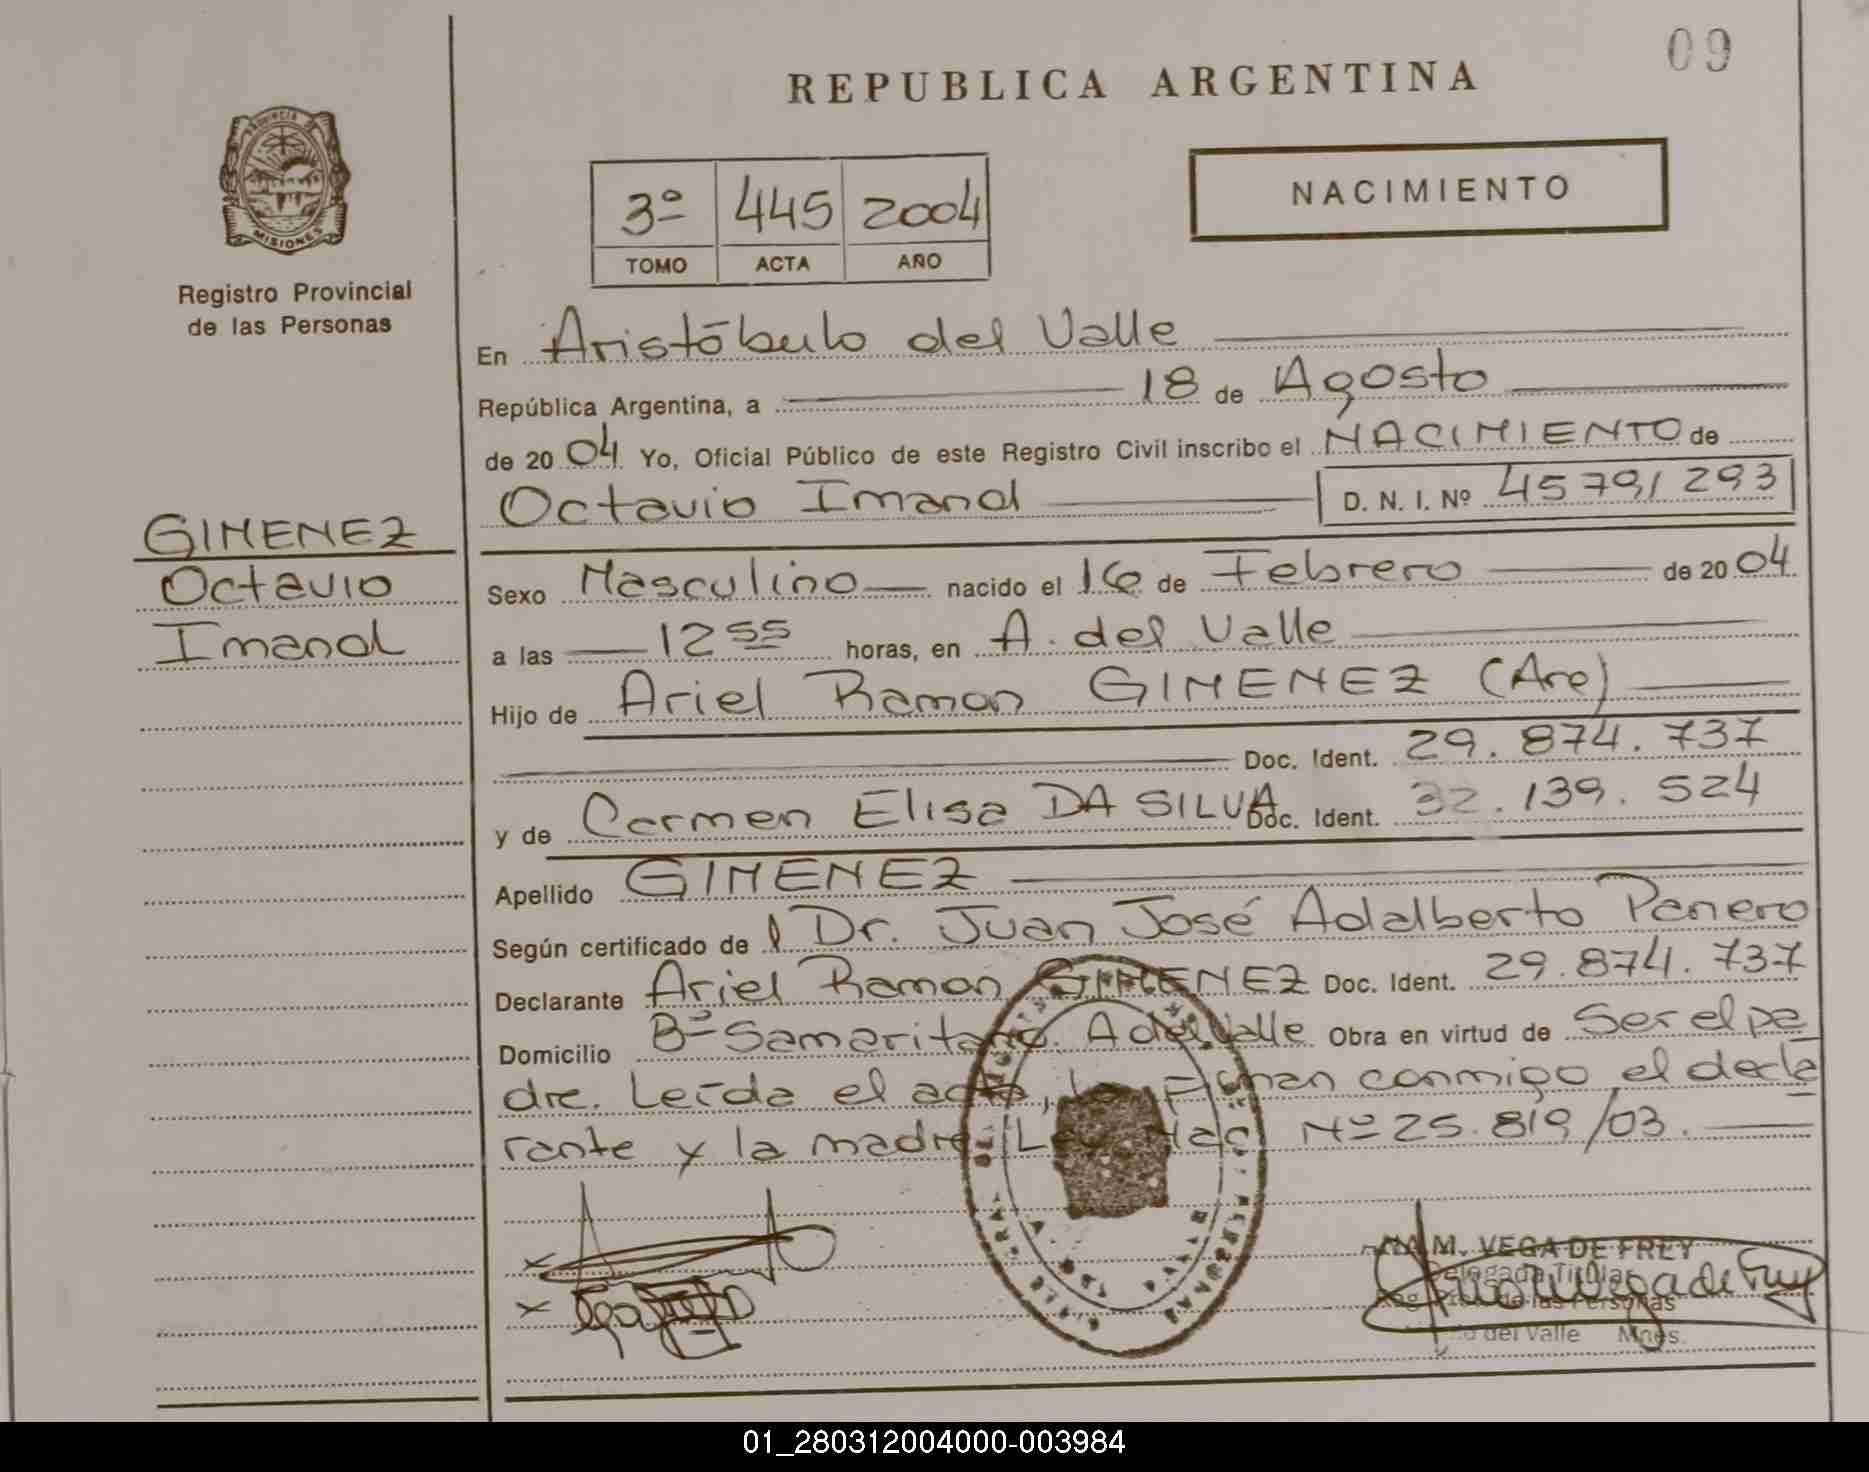 09
REPUBLICA ARGENTINA
PROVINCIA DE
MISIONES
Registro Provincial
de las Personas
3º 445 2004
TOMO ACTA AÑO
NACIMIENTO
En Aristóbulo del Valle
República Argentina, a 18 de Agosto
de 2004 Yo, Oficial Público de este Registro Civil inscribo el NACIMIENTO de
Octavio Imanol D. N. I. Nº 45791293
GIMENEZ
Octavio
Imanol
Sexo Masculino nacido el 16 de Febrero de 2004
a las 12 55 horas, en A. del Valle
Hijo de Ariel Ramon GIMENEZ (Are)
Doc. Ident. 29.874.737
y de Carmen Elisa DA SILVA Doc. Ident. 32.139.524
Apellido GIMENEZ
Según certificado de l Dr. Juan José Adalberto Panero
Declarante Ariel Ramon GIMENEZ Doc. Ident. 29.874.737
Domicilio Bº Samaritano. A del Valle Obra en virtud de Ser el pa
dre. Leída el acta, la Firman conmigo el decla
rante y la madre. Ley Nac. Nº 25.819/03.
M. VEGA DE FREY
Delegada Titular
de las Personas
del Valle Mnes.
01_280312004000-003984